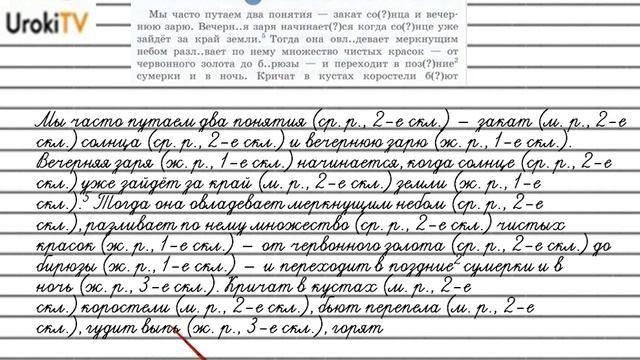 UrokiTV
Мы часто путаем два понятия — закат со(?)нца и вечер-
нюю зарю. Вечерн..я заря начинает(?)ся когда со(?)нце уже
зайдёт за край земли.⁵ Тогда она овл..девает меркнущим
небом разл..вает по нему множество чистых красок — от
червонного золота до б..рюзы — и переходит в поз(?)ние²
сумерки и в ночь. Кричат в кустах коростели б(?)ют
Мы часто путаем два понятия (ср. р., 2-е скл.) – закат (м. р., 2-е
скл.) солнца (ср. р., 2-е скл.) и вечернюю зарю (ж. р., 1-е скл.).
Вечерняя заря (ж. р., 1-е скл.) начинается, когда солнце (ср. р., 2-е
скл.) уже зайдёт за край (м. р., 2-е скл.) земли (ж. р., 1-е
скл.).⁵ Тогда она овладевает меркнущим небом (ср. р., 2-е
скл.), разливает по нему множество (ср. р., 2-е скл.) чистых
красок (ж. р., 1-е скл.) – от червонного золота (ср. р., 2-е скл.) до
бирюзы (ж. р., 1-е скл.) – и переходит в поздние² сумерки и в
ночь (ж. р., 3-е скл.). Кричат в кустах (м. р., 2-е
скл.) коростели (м. р., 2-е скл.), бьют перепела (м. р., 2-е
скл.), гудит выпь (ж. р., 3-е скл.), горят